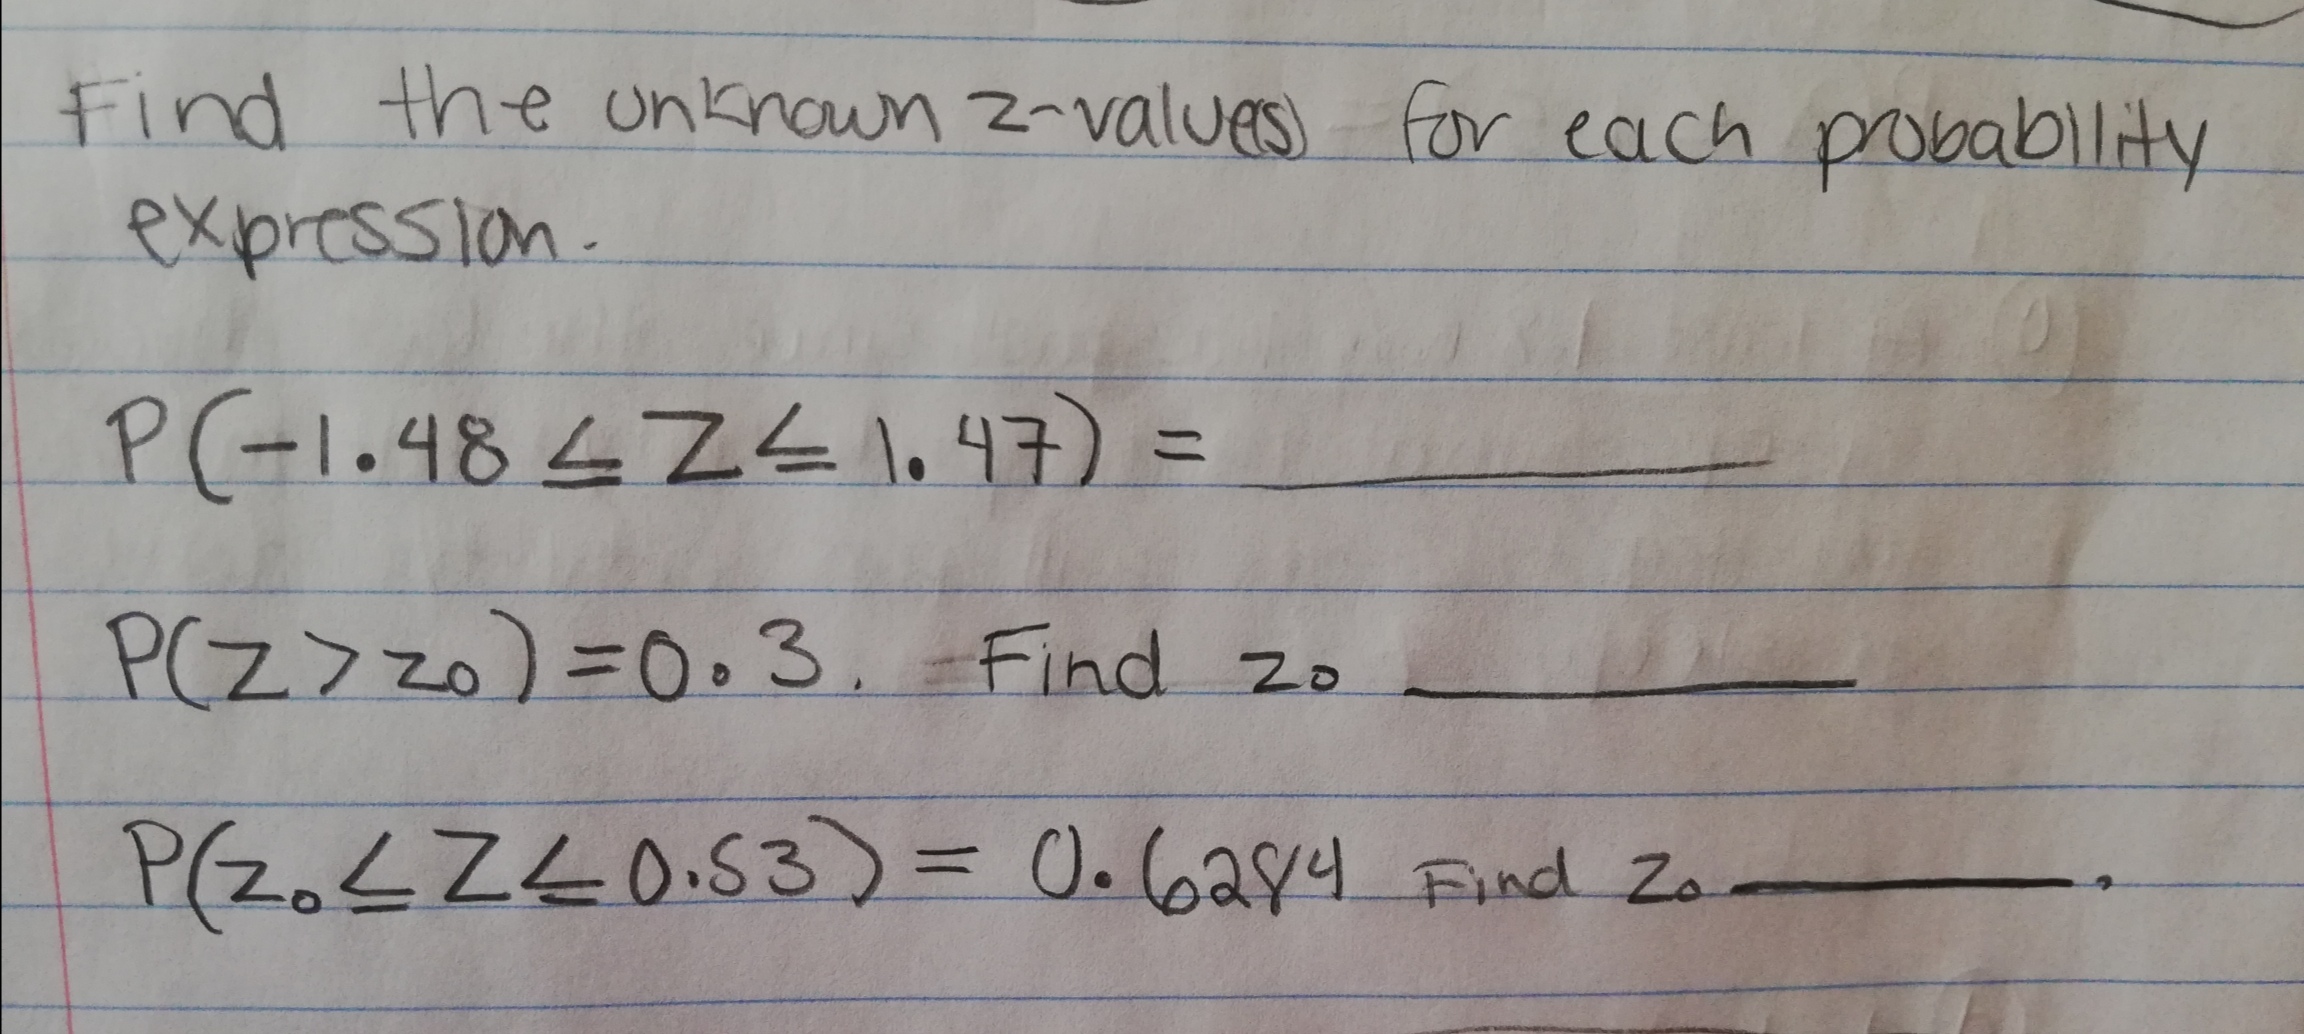 Find the unknown z-value(s) for each probability
expression.
P(-1.48 ≤ Z ≤ 1.47) =
P(Z > z₀) = 0.3. Find z₀
P(z₀ ≤ Z ≤ 0.53) = 0.6284 Find z₀ .